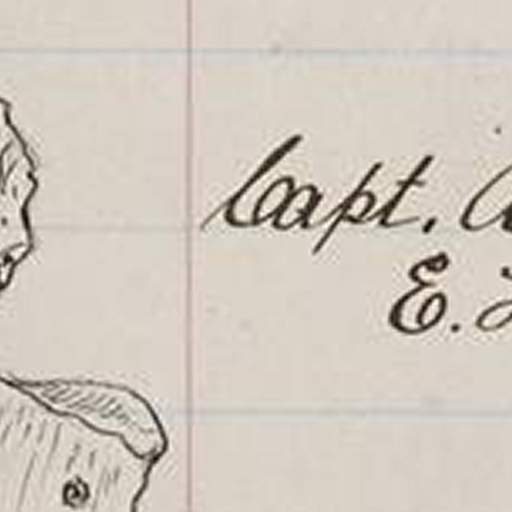 Capt.
E.